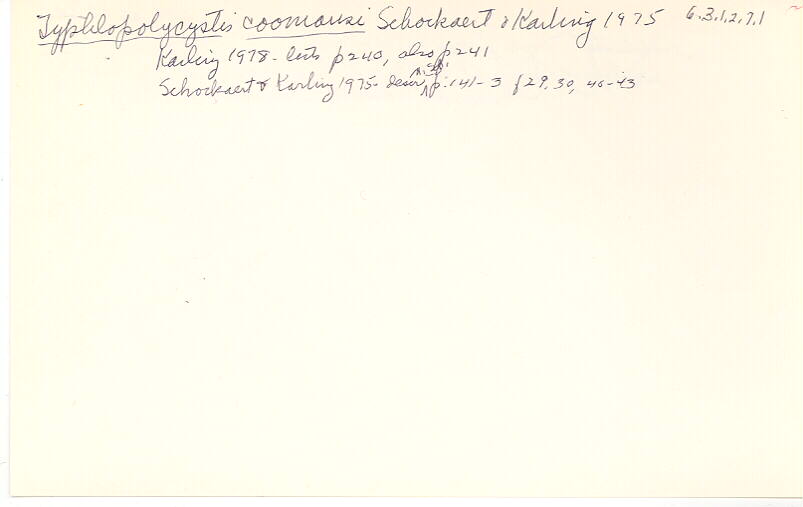 Typhlopolycystis coomansi Schockaert & Karling 1975 6.3.1.2.7.1
Karling 1978- lists p240, also p241
Schockaert & Karling 1975- descr, n. sp. p:141-3 f29,30, 40-43